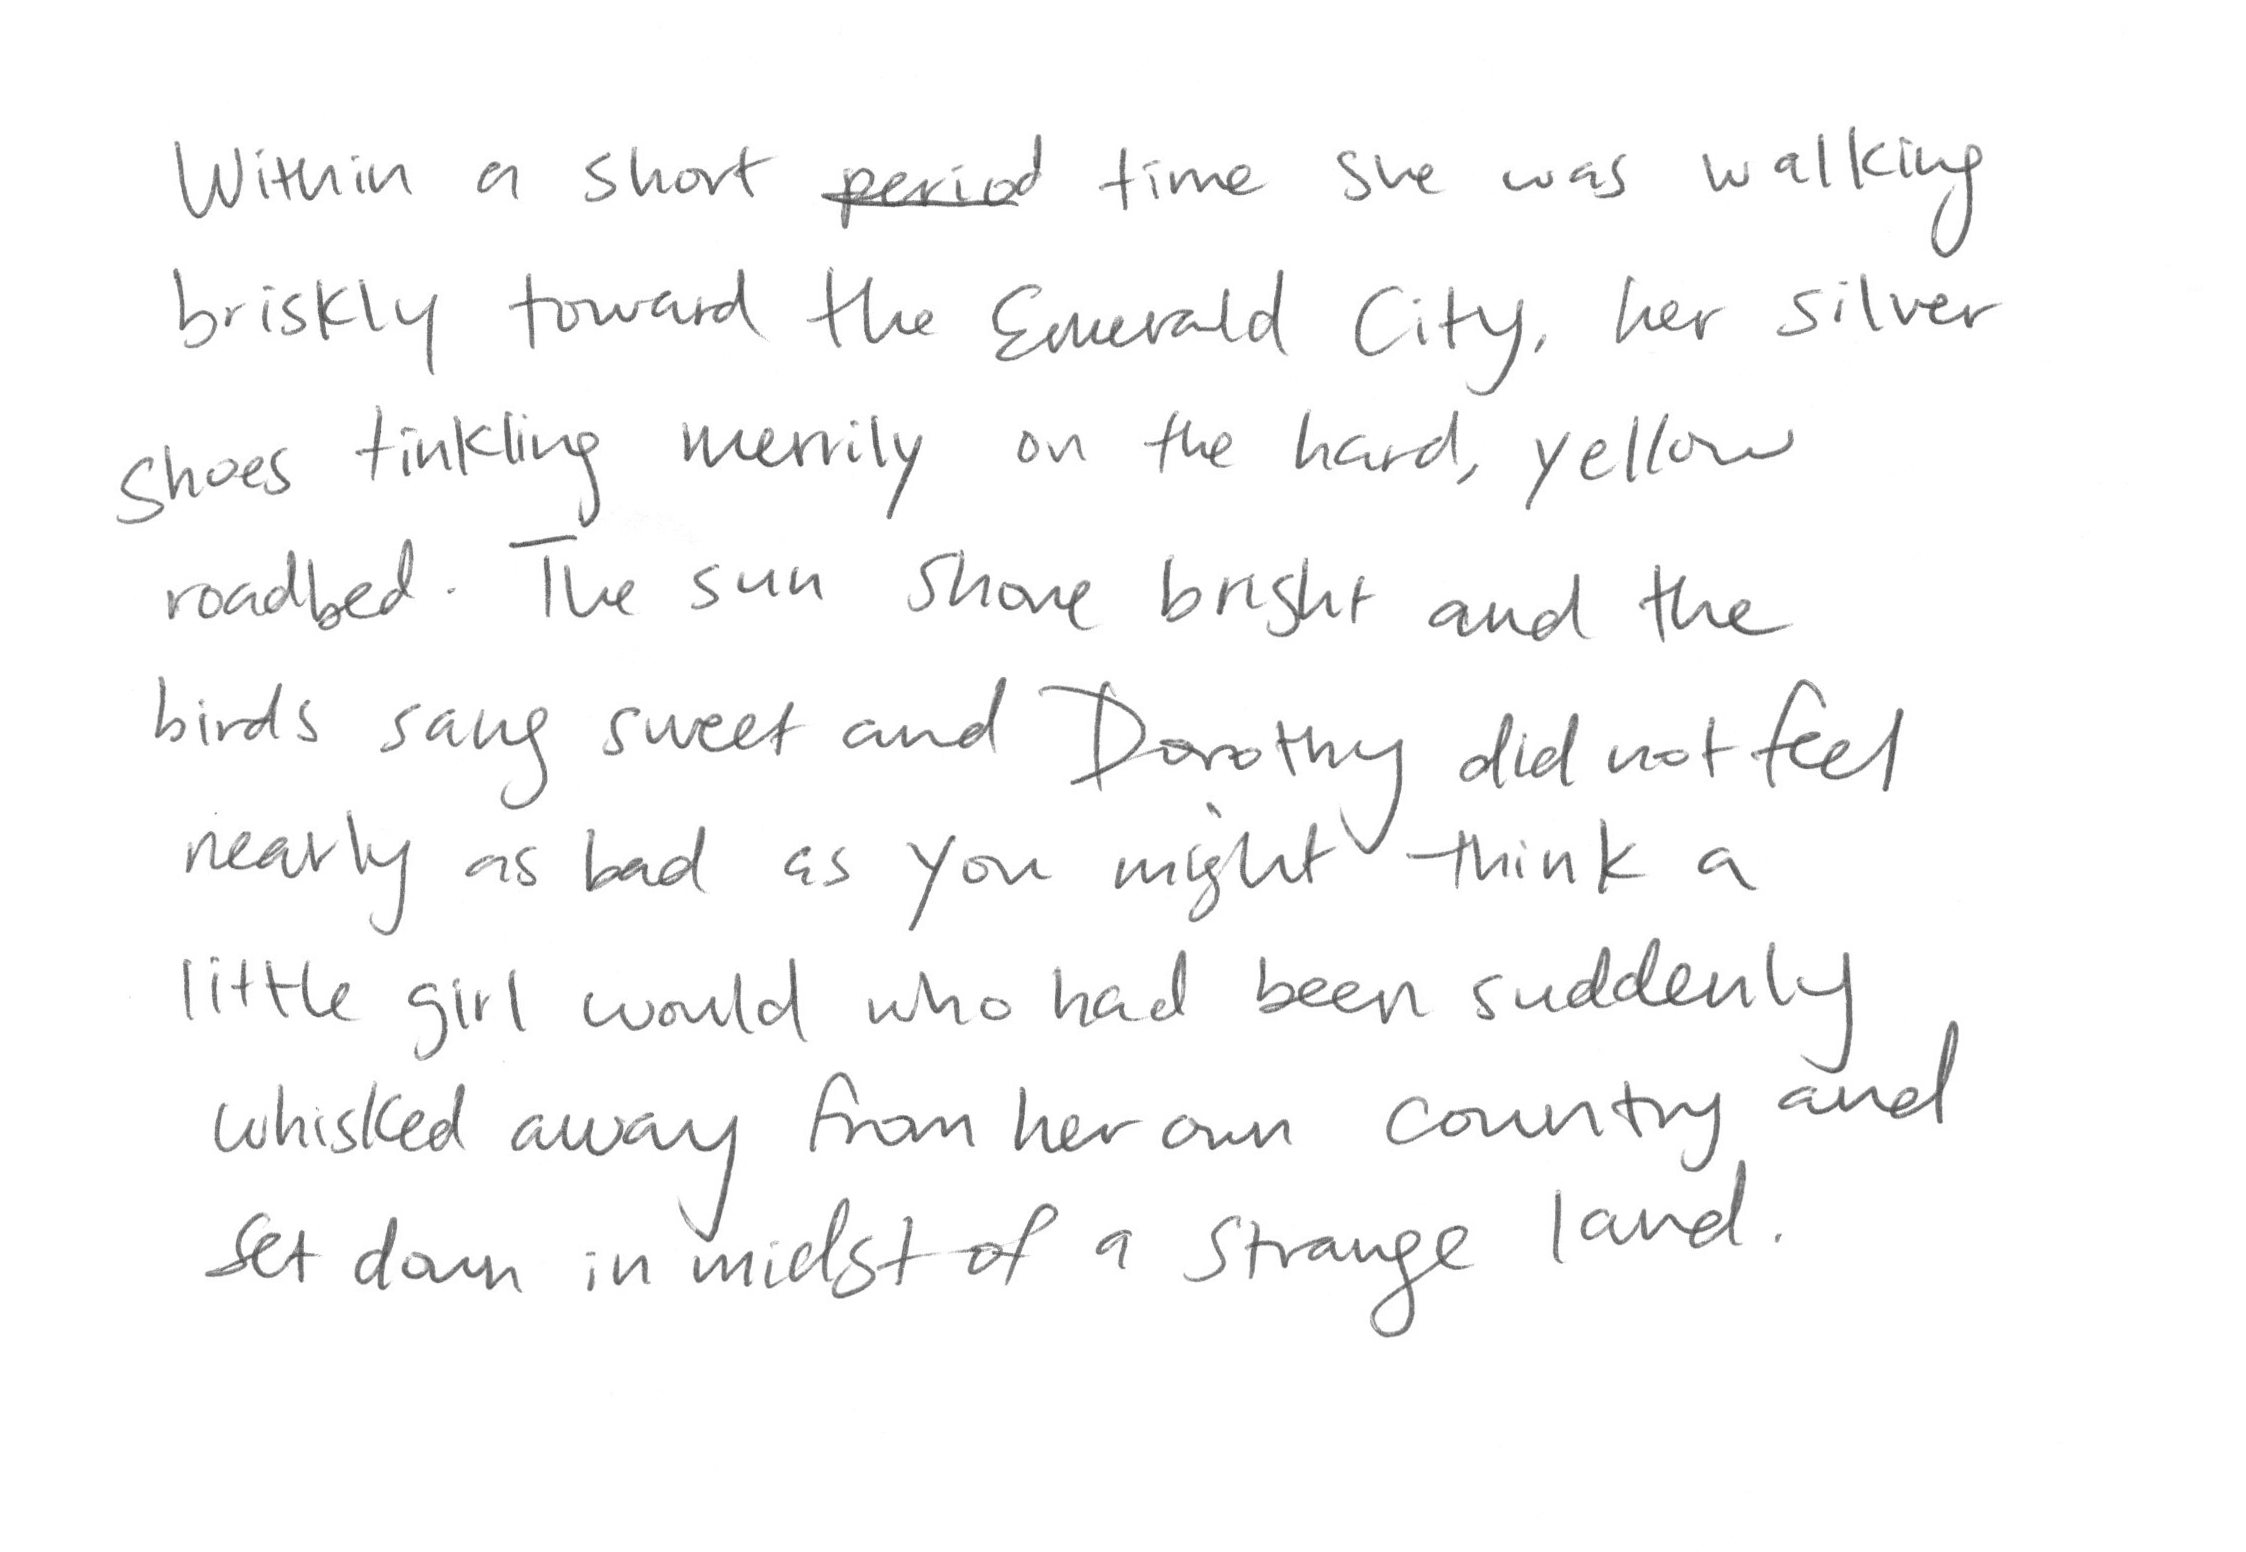 Within a short period time she was walking
briskly toward the Emerald City, her silver
shoes tinkling merrily on the hard, yellow
roadbed. The sun shone bright and the
birds sang sweet and Dorothy did not feel
nearly as bad as you might think a
little girl would who had been suddenly
whisked away from her own country and
set down in midst of a strange land.